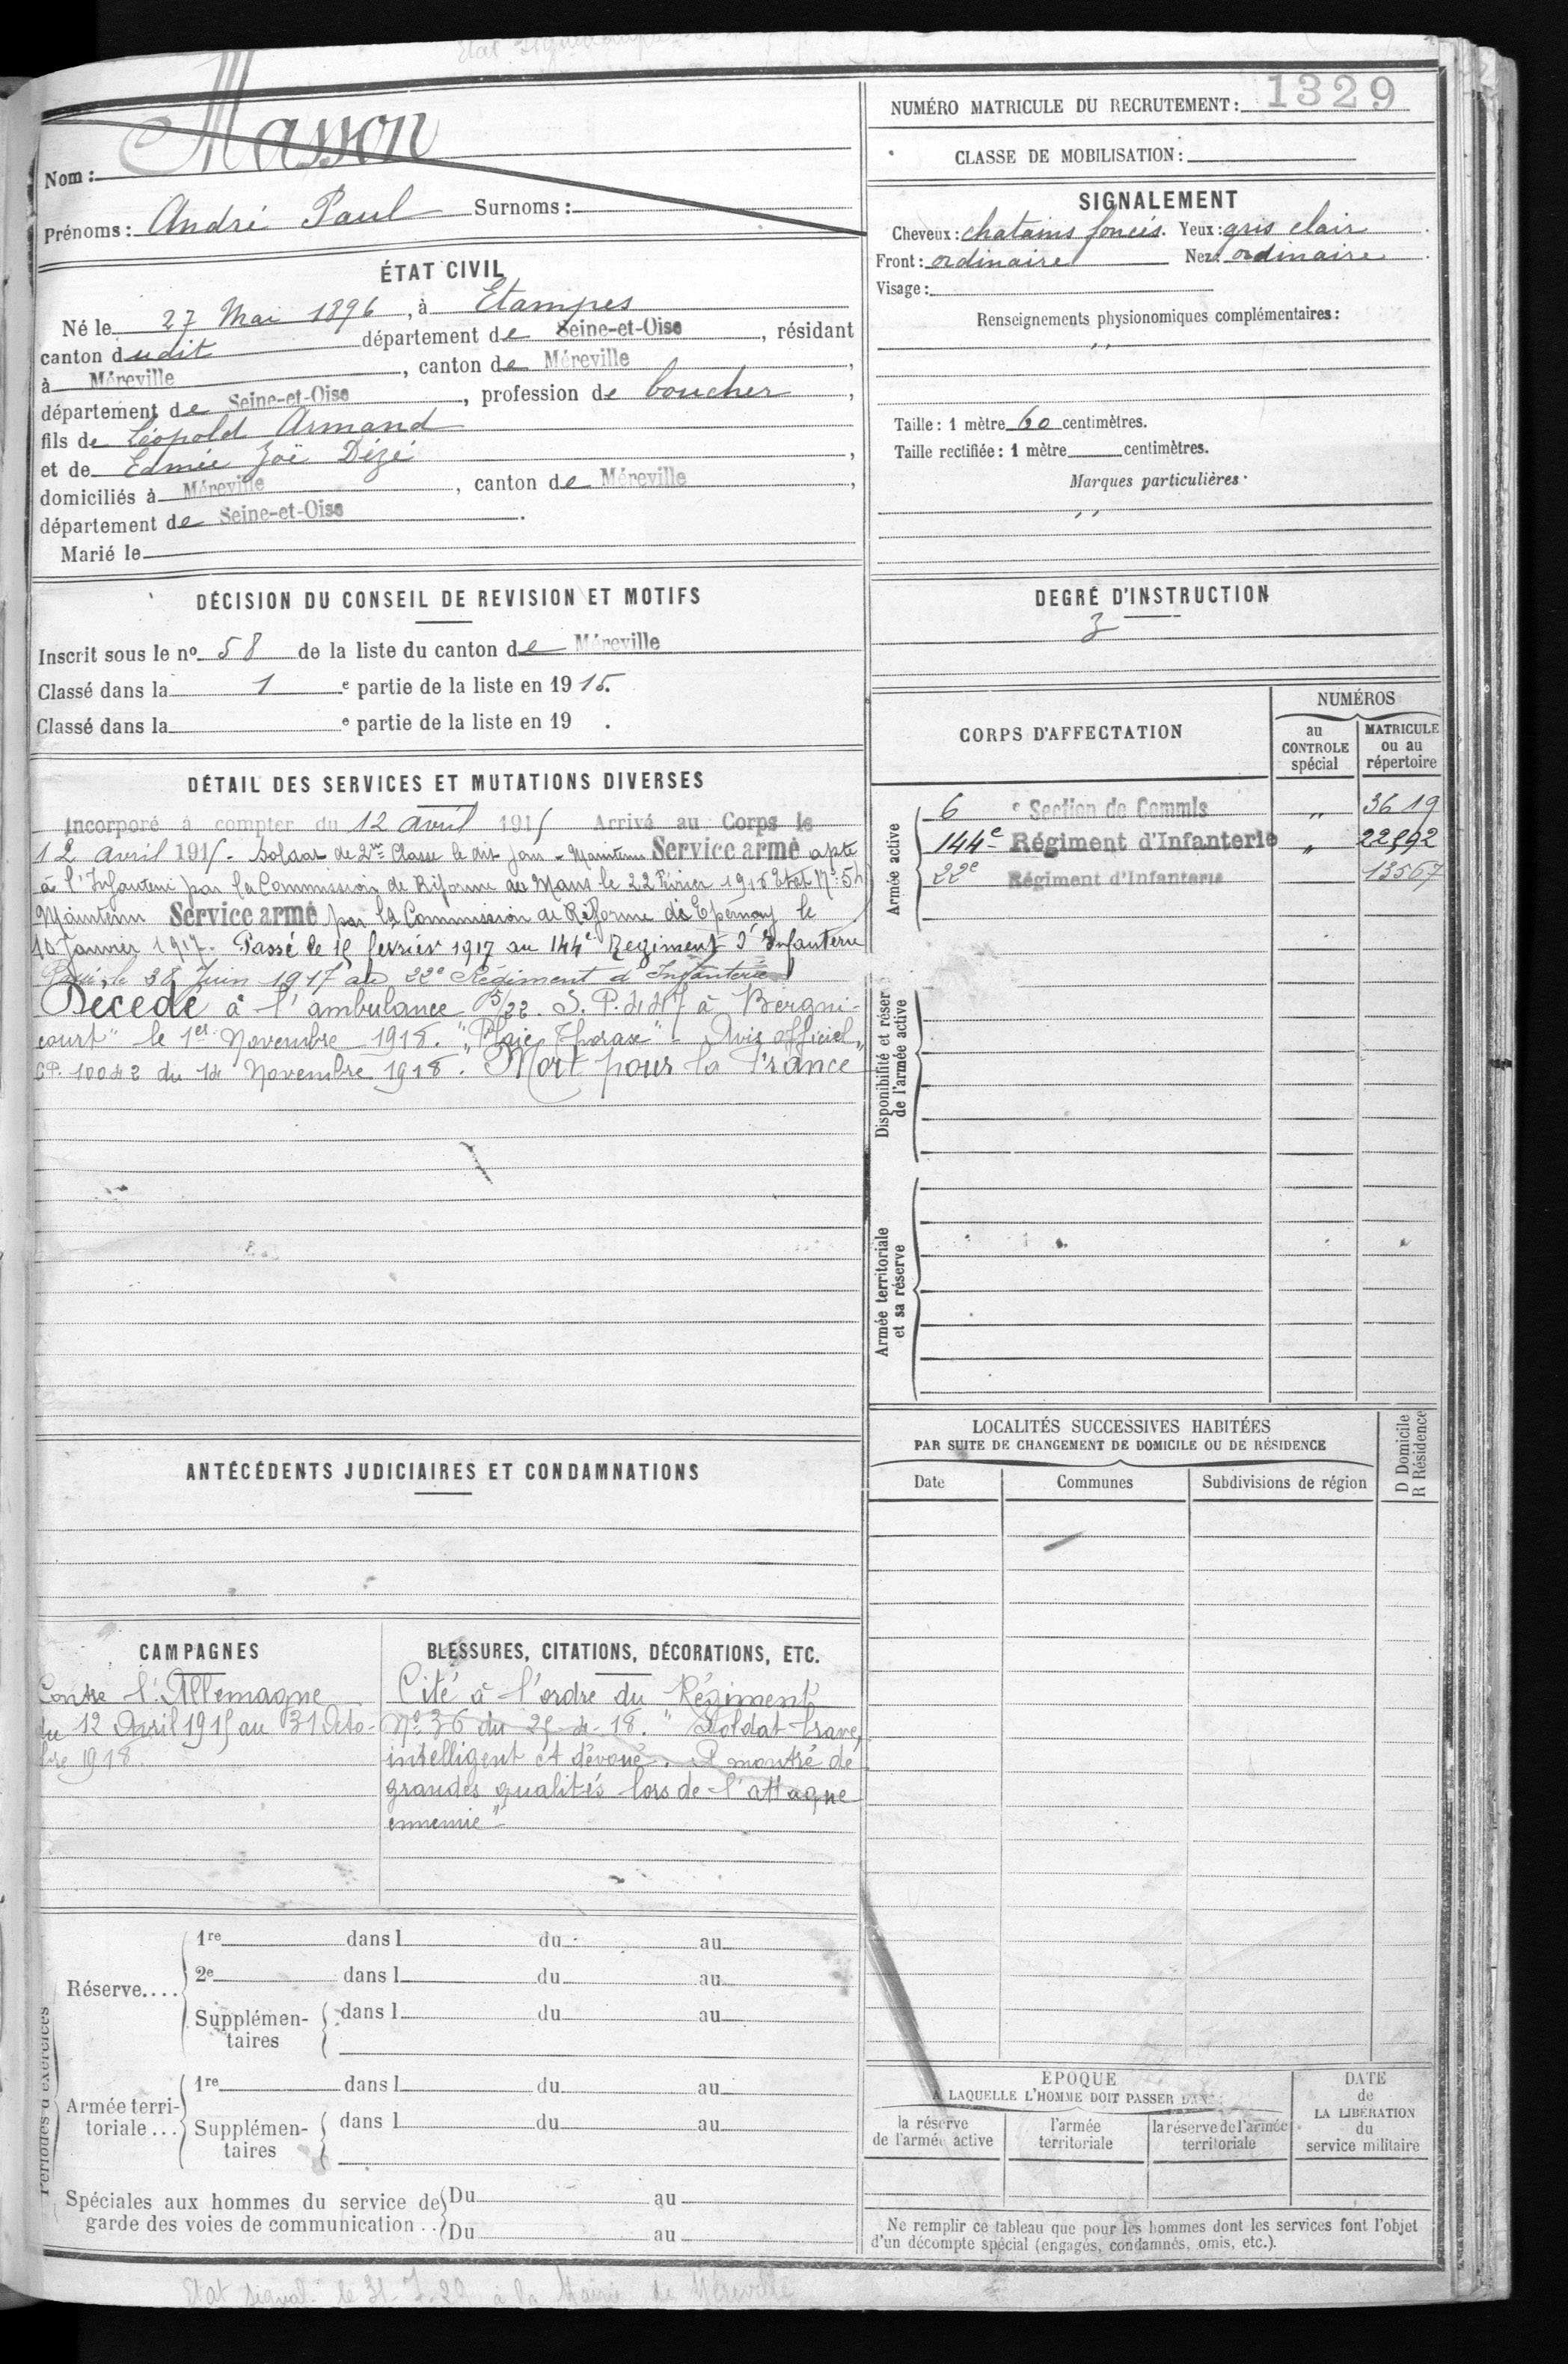 NUMÉRO MATRICULE DU RECRUTEMENT: 1329
CLASSE DE MOBILISATION:
Nom: Masson
Prénoms: André Paul Surnoms:
ÉTAT CIVIL
Né le 27 Mai 1896, à Etampes
canton dudit département de Seine-et-Oise, résidant
à Méreville, canton de Méreville,
département de Seine-et-Oise, profession de boucher,
fils de Léopold Armand
et de Edmée Zoë Dézé,
domiciliés à Méreville, canton de Méreville,
département de Seine-et-Oise.
Marié le
DÉCISION DU CONSEIL DE REVISION ET MOTIFS
Inscrit sous le nº 58 de la liste du canton de Méreville
Classé dans la 1 e partie de la liste en 1915.
Classé dans la e partie de la liste en 19 .
DÉTAIL DES SERVICES ET MUTATIONS DIVERSES
Incorporé à compter du 12 avril 1915 Arrivé au Corps le
12 avril 1915. Soldat de 2me Classe le dit jour - Maintenu Service armé apte
à l'Infanterie par la Commission de Réforme du Mans le 22 Février 1916 Etat Nº 54
Maintenu Service armé par la Commission de Réforme d'Epernay le
10 Janvier 1917. Passé le 15 février 1917 au 144e Regiment d'Infanterie
Passé le 38 Juin 1917 au 22e Régiment d'Infanterie
Décédé à l'ambulance 5/22. S.P. à Bergni-
court" le 1er Novembre 1918. "Plaie Thorax" - Avis officiel
CP. 10042 du 14 Novembre 1918. Mort pour la France
ANTÉCÉDENTS JUDICIAIRES ET CONDAMNATIONS
CAMPAGNES
Contre l'Allemagne
du 12 Avril 1915 au 31 Octo-
bre 1918
BLESSURES, CITATIONS, DÉCORATIONS, ETC.
Cité à l'ordre du Régiment
Nº 36 du 25-4-18. "Soldat brave,
intelligent et dévoué. A montré de
grandes qualités lors de l'attaque
ennemie"
Périodes d'exercices
Réserve....
1re dans l du au
2e dans l du au
Supplémen- dans l du au
taires
Armée terri-
toriale...
1re dans l du au
Supplémen- dans l du au
taires
Spéciales aux hommes du service de Du au
garde des voies de communication .. Du au
SIGNALEMENT
Cheveux: chatains foncés. Yeux: gris clair
Front: ordinaire Nez: ordinaire
Visage:
Renseignements physionomiques complémentaires:
,,
Taille: 1 mètre 60 centimètres.
Taille rectifiée: 1 mètre centimètres.
Marques particulières:
,,
DEGRÉ D'INSTRUCTION
3
CORPS D'AFFECTATION
NUMÉROS
au CONTROLE spécial
MATRICULE ou au répertoire
Armée active
6 e Section de Commis " 3619
144e Régiment d'Infanterie " 22592
22e Régiment d'Infanterie 13567
Disponibilité et réser
de l'armée active
Armée territoriale
et sa réserve
LOCALITÉS SUCCESSIVES HABITÉES
PAR SUITE DE CHANGEMENT DE DOMICILE OU DE RÉSIDENCE
D Domicile
R Résidence
Date Communes Subdivisions de région
EPOQUE
A LAQUELLE L'HOMME DOIT PASSER DANS:
la réserve
de l'armée active
l'armée
territoriale
la réserve de l'armée
territoriale
DATE
de
LA LIBÉRATION
du
service militaire
Ne remplir ce tableau que pour les hommes dont les services font l'objet
d'un décompte spécial (engagés, condamnés, omis, etc.).
Etat signal. le 31-7-29 à la Mairie de Méreville